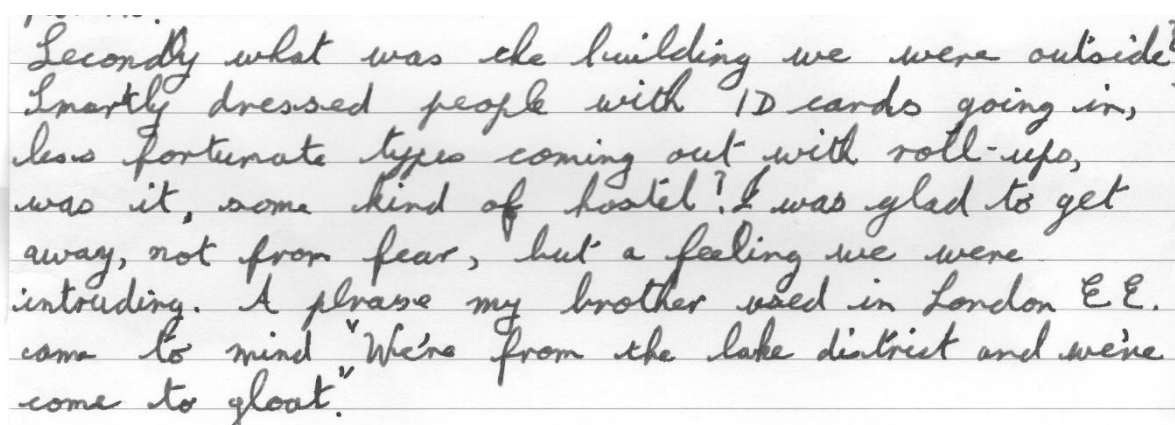 Secondly what was the building we were outside?
Smartly dressed people with ID cards going in,
less fortunate types coming out with roll-ups,
was it, some kind of hostel? I was glad to get
away, not from fear, but a feeling we were
intruding. A phrase my brother used in London EE.
came to mind "We're from the lake district and we're
come to gloat."